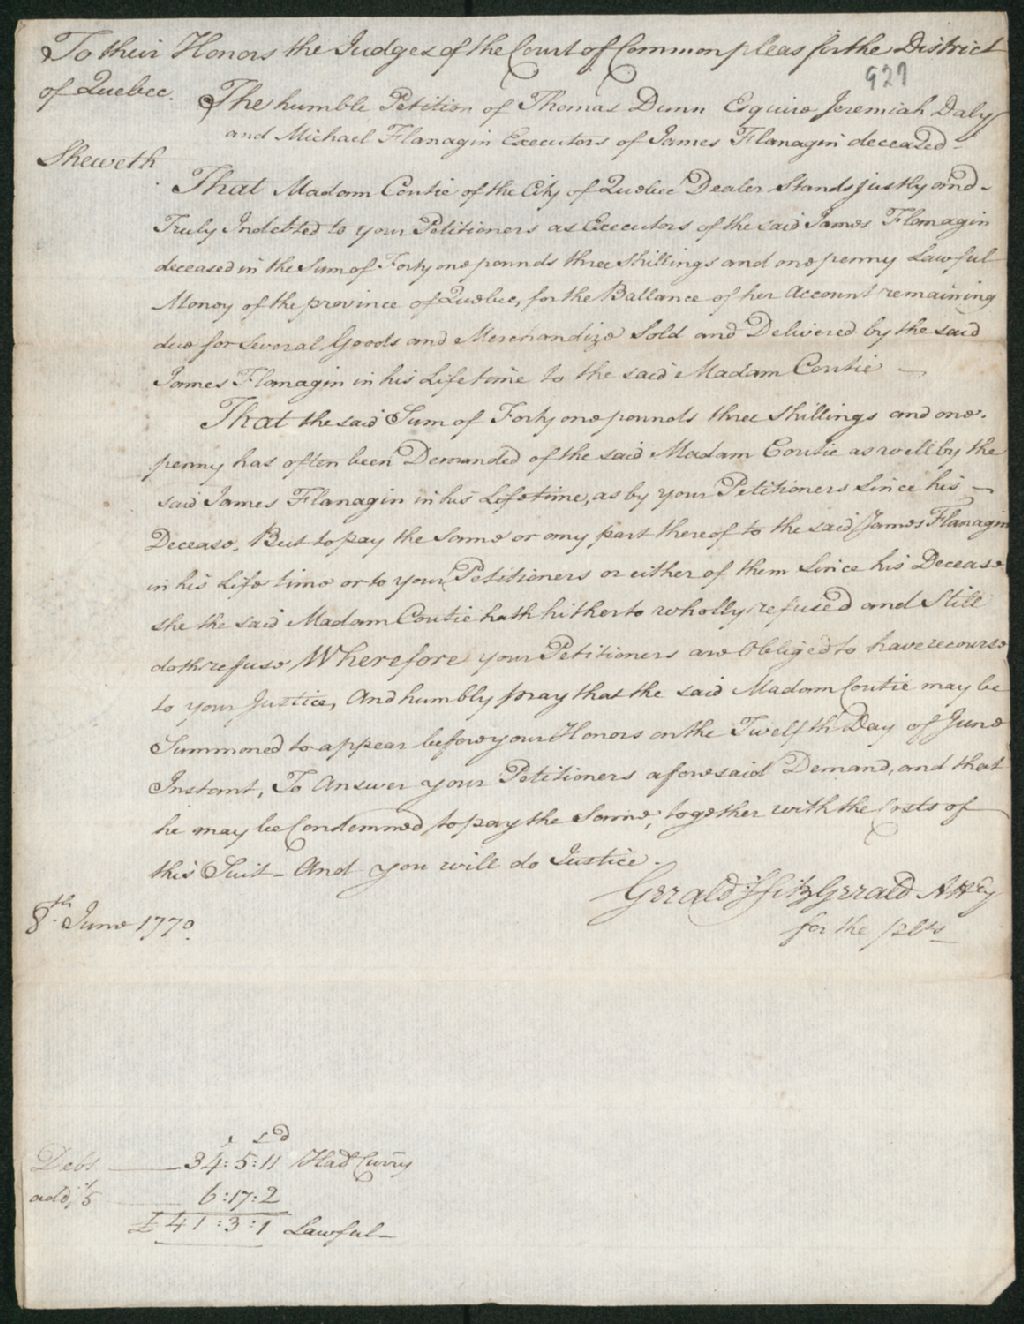 To their Honors the Judges of the Court of Common pleas for the District
of Quebec.
927
The humble Petition of Thomas Dunn Esquire Jeremiah Daly
and Michael Flanagin Executors of James Flanagin deceased -
Sheweth
That Madam Coutie of the City of Quebec Dealer Stands justly and -
Truly Indebted to your Petitioners as Executors of the said James Flanagin
deceased in the Sum of Forty one pounds three Shillings and one penny Lawful
Money of the province of Quebec, for the Ballance of her Account remaining
due for Several Goods and Merchandize Sold and Delivered by the said
James Flanagin in his Lifetime to the said Madam Coutie —
That the said Sum of Forty one pounds three Shillings and one -
penny has often been Demanded of the said Madam Coutie as well by the
said James Flanagin in his Lifetime, as by your Petitioners Since his —
Decease. But to pay the Same or any part thereof to the said James Flanagin
in his Life time or to your Petitioners or either of them Since his Decease
she the said Madam Coutie hath hitherto wholly refused and Still
doth refuse, Wherefore your Petitioners are Obliged to have recourse
to your Justice, And humbly pray that the said Madam Coutie may be
Summoned to appear before your Honors on the Twelfth Day of June
Instant, To Answer your Petitioners aforesaid Demand, and that
he may be Condemned to pay the Same, together with the Costs of
this Suit - And you will do Justice.
Gerald FitzGerald Attey
for the petrs
8th June 1770.
s d
Debt — 34:5:11 Hal Curry
add 1/5 — 6:17:2
£ 41:3:1 Lawful -